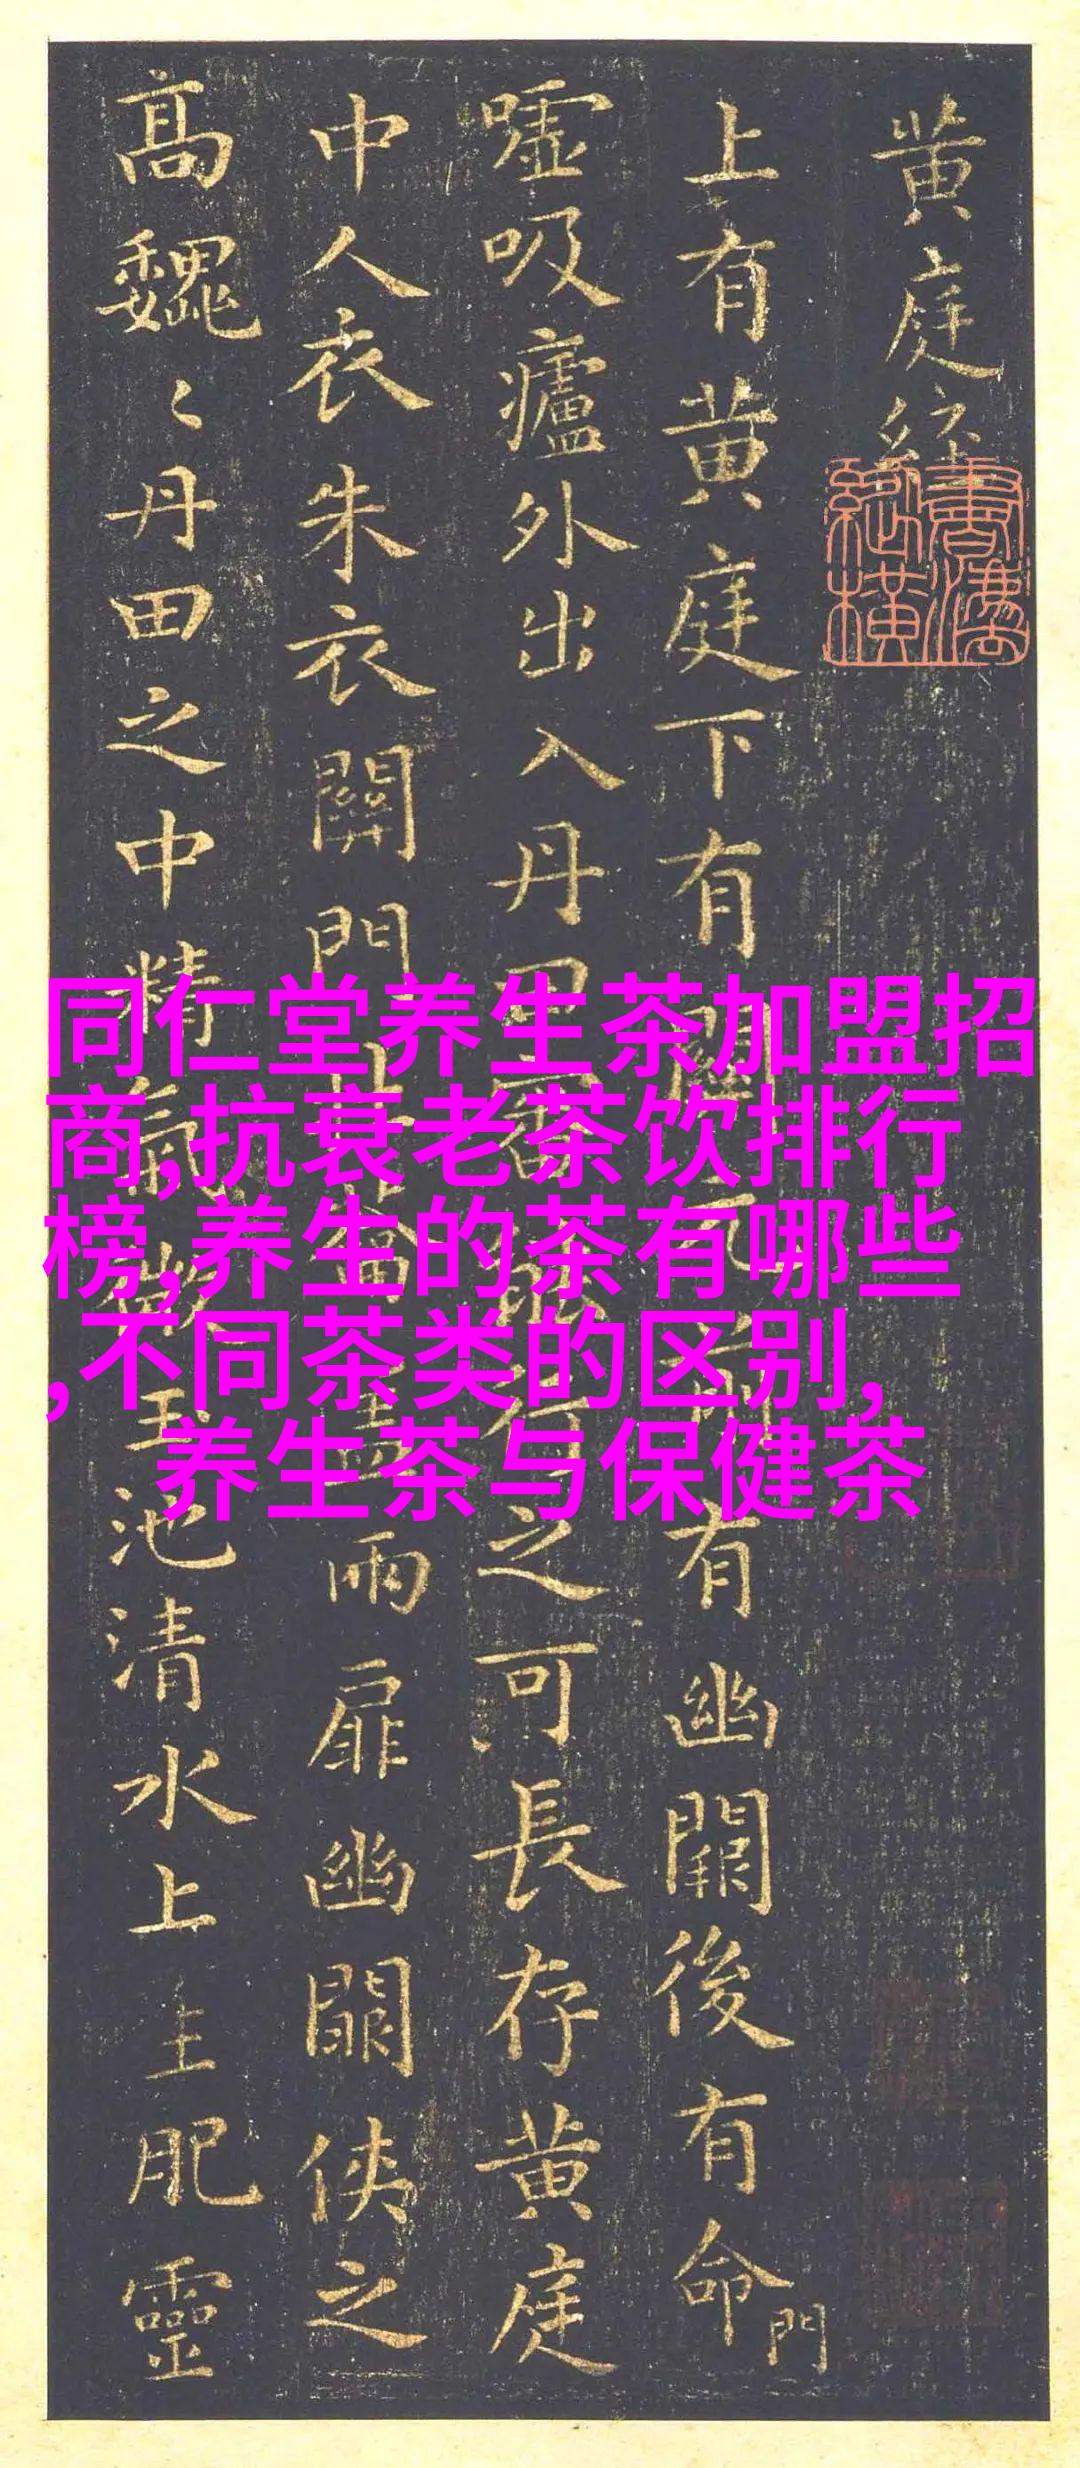 黄庭經
上有黄庭下有關元前有幽闕後有命門
噓吸廬外出入丹田審能行之可長存黄庭
中人衣朱衣關門壯籥蓋兩扉幽闕俠之
高巍〻丹田之中精氣微玉池清水上生肥靈
同仁堂养生茶加盟招
商,抗衰老茶饮排行
榜,养生的茶有哪些
,不同茶类的区别,
养生茶与保健茶